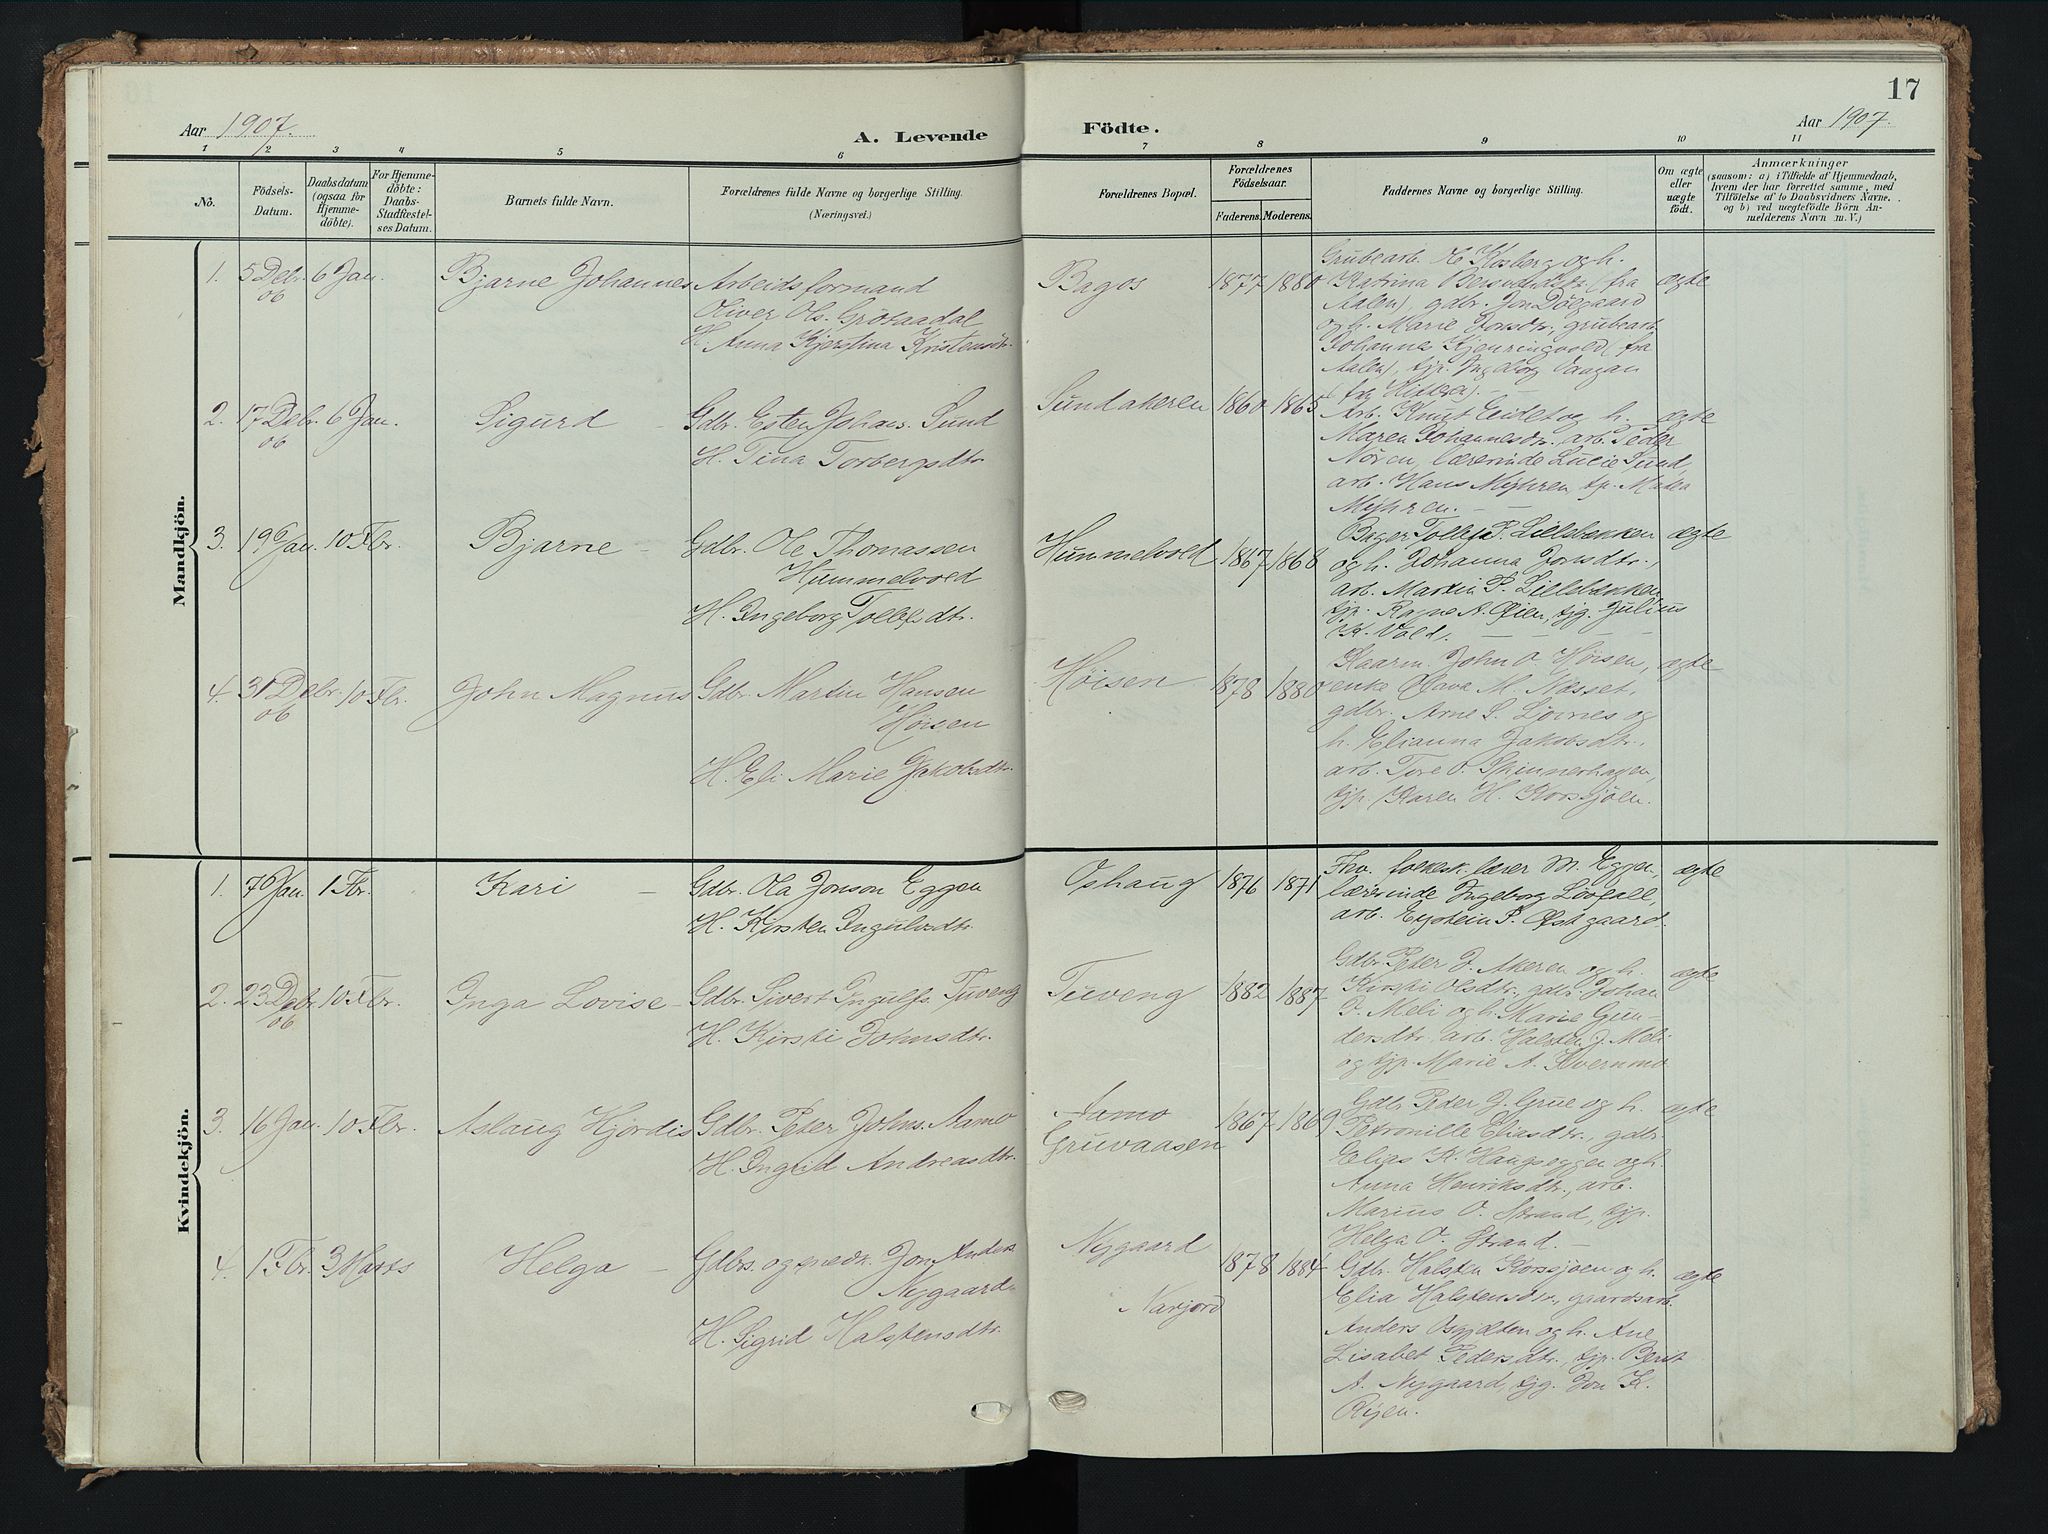 17
Aar 1907.
A. Levende
Födte.
Aar 1907.
1 2 3 4 5 6 7 8 9 10 11
No.
Födsels-
Datum.
Daabsdatum
(ogsaa for
Hjemme-
döbte).
For Hjemme-
döbte:
Daabs-
Stadfæstel-
ses Datum.
Barnets fulde Navn.
Forældrenes fulde Navne og borgerlige Stilling.
(Næringsvei.)
Forældrenes Bopæl.
Forældrenes
Födselsaar.
Faderens. Moderens.
Faddernes Navne og borgerlige Stilling.
Om ægte
eller
uægte
födt.
Anmærkninger
(saasom: a) i Tilfælde af Hjemmedaab,
hvem der har forrettet samme, med
Tilföielse af to Daabsvidners Navne.
og b) ved uægtefödte Börn An-
melderens Navn m. V.)
Mandkjön.
1. 5 Debr. 06 6 Jan. Bjarne Johannes
Arbeidsformand
Oliver Ols. Grötaadal
H. Anna Kjerstina Kristensdtr.
Bagos 1877 1880
Grubearb. Kosberg og h.
Katrina (fra
Aalen), gdbr. Jon Döegaard
og h. Marie Jonsdr., grubearb.
Johannes Kjenringvold (fra
Aalen), tjp. Ingeborg
(fra Hitteren). —
ægte
2. 17 Debr. 06 6 Jan. Sigurd —
Gdbr. Esten Johans. Sund
H. Tina Torbergsdtr.
Sundakeren 1860 1865
Arb. Knut Eidet og h.
Maren Johannesdr., arb. Peder
Nören, lærerinde Lucie Sund,
arb. Hans Myhren tjp.
Myhren. — —
ægte
3. 19 Jan. 10 Fbr. Bjarne —
Gdbr. Ole Thomassen
Hummelvold
H. Ingeborg Tollefsdtr.
Hummelvold 1867 1868
Bager Tollef P. Lillebakken
og h. Johanna Jonsdtr.,
arb. Martin P. Lillebakken
tjp. Ragne A. Øien, tjg. Julius
K. Vold. — — — —
ægte
4. 31 Debr. 06 10 Fbr. John Magnus
Gdbr. Martin Hansen
Høisen
H. Eli Marie Jakobsdtr.
Høisen 1878 1880
Kaarm. John O. Høisen,
enke Olava M. Næsset,
gdbr. Arne S. Löcnes og
h. Elianna Jakobsdtr.,
arb. Tore O. Skinnerhagen,
tjp. Karen H. Korssjöen.
ægte
Kvindekjön.
1. 7 Jan. 1 Fbr. Kari —
Gdbr. Ola Jonson Eggen
H. Kirsten Ingulvsdtr.
Oshaug 1876 1871
Fhv. folkesk. lærer M. Eggen,
lærerinde Ingeborg Lövfall,
arb. Eystein P. Østgaard.
ægte
2. 23 Debr. 06 10 Fbr. Inga Lovise —
Gdbr. Sivert Ingulfs. Tuveng
H. Kirsti Johnsdtr.
Tuveng 1882 1887
Gdbr. Peter J. Akeren og h.
Kirsti Olsdtr., gdbr. Johan
J. Meli og h. Marie Gun-
dersdtr., arb. Halsten J. Meli
og tjp. Marie A. Kvernmo.
ægte
3. 16 Jan. 10 Fbr. Aslaug Hjördis
Gdbr. Peter Johns. Aamo
H. Ingrid Andreasdtr.
Aamo
Gruvaasen 1867 1869
Gdbr. Peder J. Grue og h.
Petronille Eliasdtr., gdbr.
Elias K. Haugseggen og h.
Anna Henriksdtr., arb.
Marius O. Strand, tjp.
Helga O. Strand. —
ægte
4. 1 Fbr. 3 Marts Helga —
Gdbr. og snedk. Jon Anders.
Nygaard
H. Sigrid Halstensdtr.
Nygaard
Narjord 1878 1884
Gdbr. Halsten Korssjöen og h.
Elia Halstensdtr., gaardsarb.
Anders Osgjelten og h. Ane
Lisabet Pedersdtr., tjp. Berit
A. Nygaard, tjg. Jon K.
Rijen.
ægte